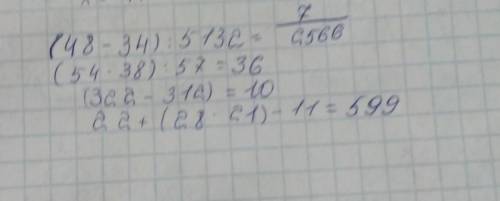 (48 - 34) : 5132 = 7/2566
(54 · 38) : 57 = 36
(322 - 312) = 10
22 + (28 · 21) - 11 = 599